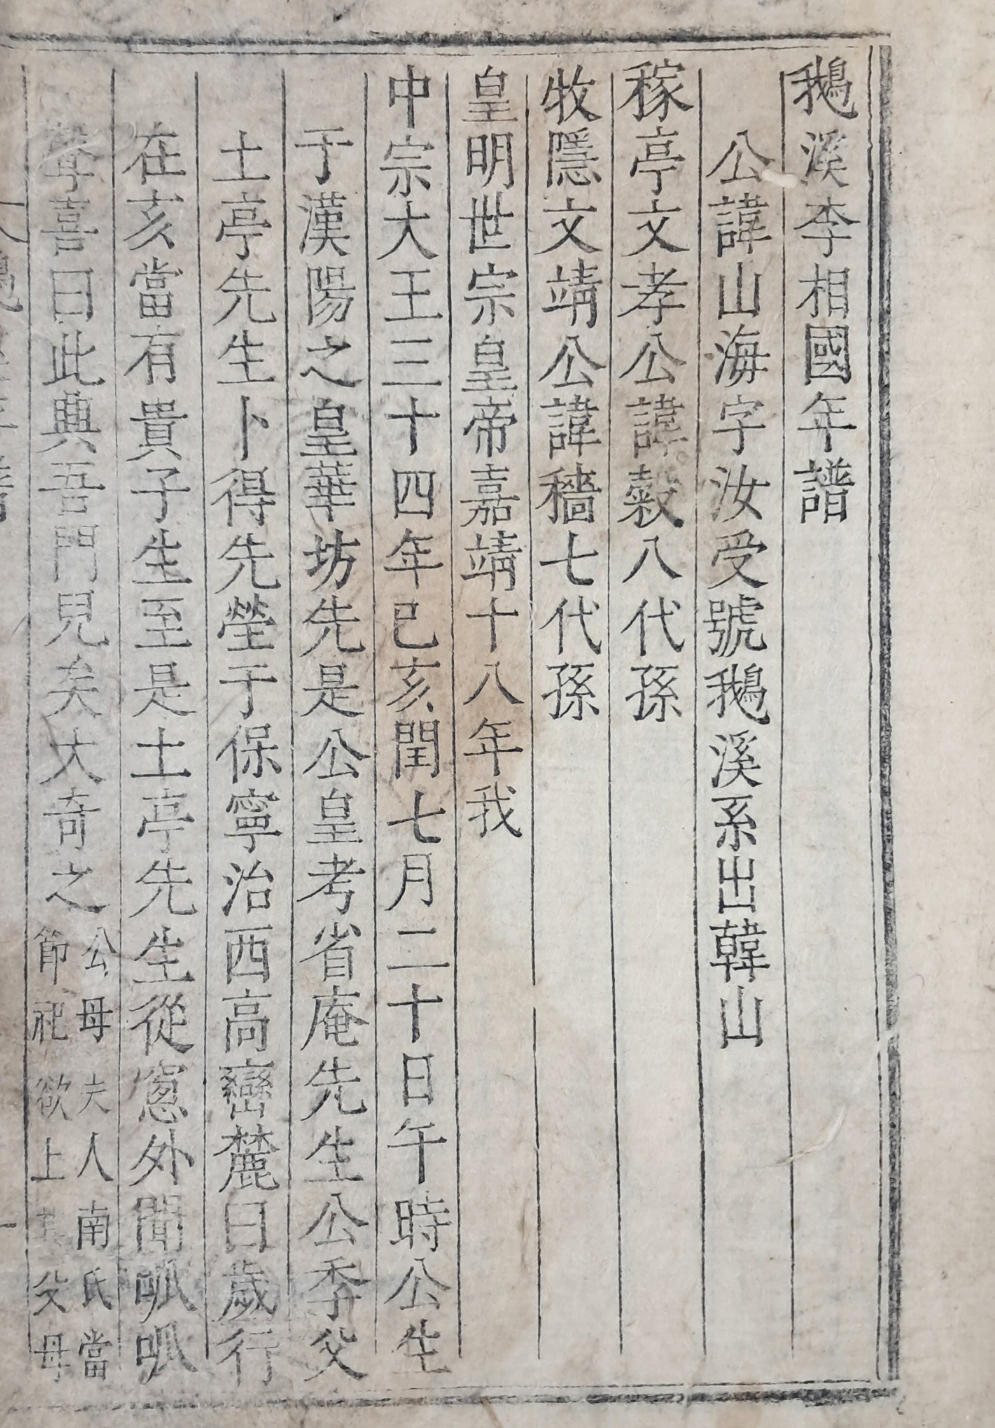 鵝溪李相國年譜
公諱山海字汝受號鵝溪系出韓山
稼亭文孝公諱穀八代孫
牧隱文靖公諱穡七代孫
皇明世宗皇帝嘉靖十八年我
中宗大王三十四年己亥閏七月二十日午時公生
于漢陽之皇華坊先是公皇考省庵先生公季父
土亭先生卜得先塋于保寧治西高巒麓曰歲行
在亥當有貴子生至是土亭先生從窓外聞呱呱
聲喜曰此興吾門兒矣大奇之
公母夫人南氏當
節祀欲上父母